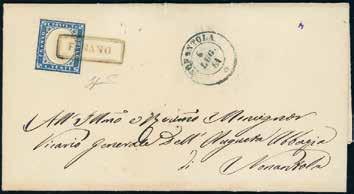 NONANTOLA
6
LUG.
61
All' Illmo e Revmo Monsignor
Vicario Generale Dell' Augusta Abbazia
di Nonantola